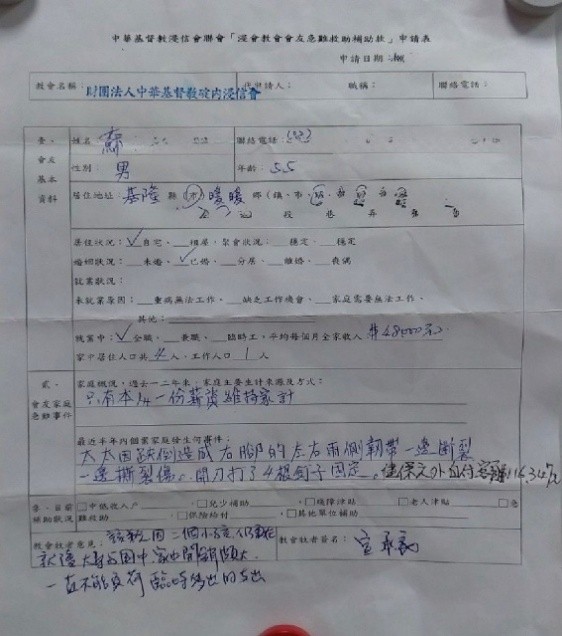 中華基督教浸信會聯會「浸會教會會友急難救助補助款」申請表
申請日期：
教會名稱：財團法人中華基督教碇內浸信會 代申請人： 職稱： 聯絡電話：
壹、會友基本資料
姓名 蘇 聯絡電話：
性別 男 年齡：55
居住地址：基隆 縣 市 暖暖 鄉（鎮、市、
居住狀況：✓自宅、__租屋，聚會狀況：__穩定、__穩定
婚姻狀況：__未婚、✓已婚、__分居、__離婚、__喪偶
就業狀況：
未就業原因：__重病無法工作、__缺乏工作機會、__家庭需要無法工作、
其他：
就業中：✓全職、__兼職、__臨時工，平均每個月全家收入 $48000元
家中居住人口共 4 人，工作人口 1 人
貳、會友家庭急難事件
家庭概況，過去一二年來，家庭主要生計來源及方式：
只有本人一份薪資維持家計
最近半年內個案家庭發生何事件：
太太因跌倒造成右腳的左右兩側韌帶一邊斷裂
一邊撕裂傷。開刀打了4根釘子固定。健保之外自付額
參、目前補助狀況
□中低收入戶 □兒少補助 □殘障津貼 □老人津貼 □急難救助 □保險給付 □其他單位補助
教會牧者意見：因二個小孩仍在
就讀大學與國中家出開銷頗大.
一直不能負荷臨時多出的支出
教會牧者簽名：